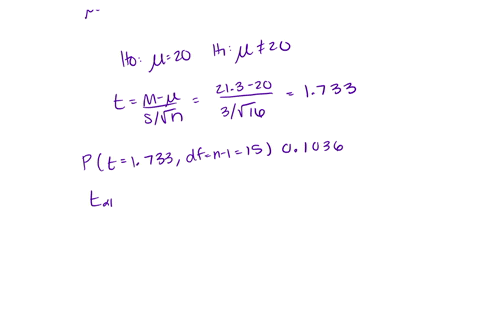 H0: μ=20 H1: μ≠20
t = M-μ / S/√n = 21.3-20 / 3/√16 = 1.733
P(t=1.733, df=n-1=15) 0.1036